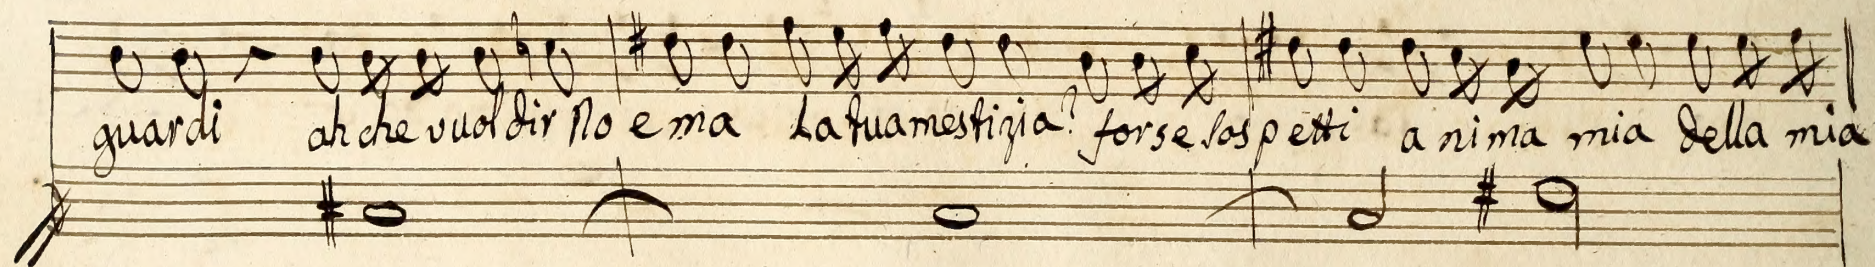 guardi ah che vuol dir Noema La tua mestizia? forse sospetti anima mia della mia